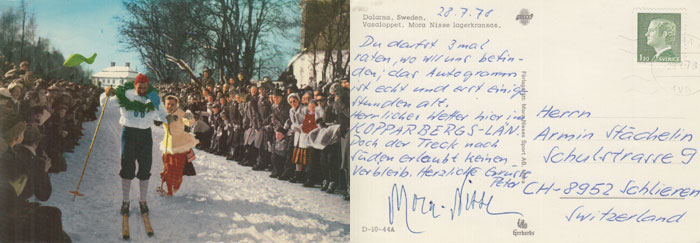 28.7.78
Dalarna, Sweden.
Vasaloppet, Mora Nisse lagerkransas.
Du darfst 3mal
raten, wo wir uns befin-
den; das Autogramm
ist echt und erst einige
Stunden alt.
Herrliches Wetter hier im
KOPPARBERGS-LÄN.
Doch der Treck nach
Süden erlaubt keinen
Verbleib. Herzliche Grüsse
Peter
Mora-Nisse
D-10-44A
Förlag: Mora Nisse Sport AB
Grönbergs
SVERIGE
Herrn
Armin Stächelin
Schulstrasse 9
CH-8952 Schlieren
Switzerland